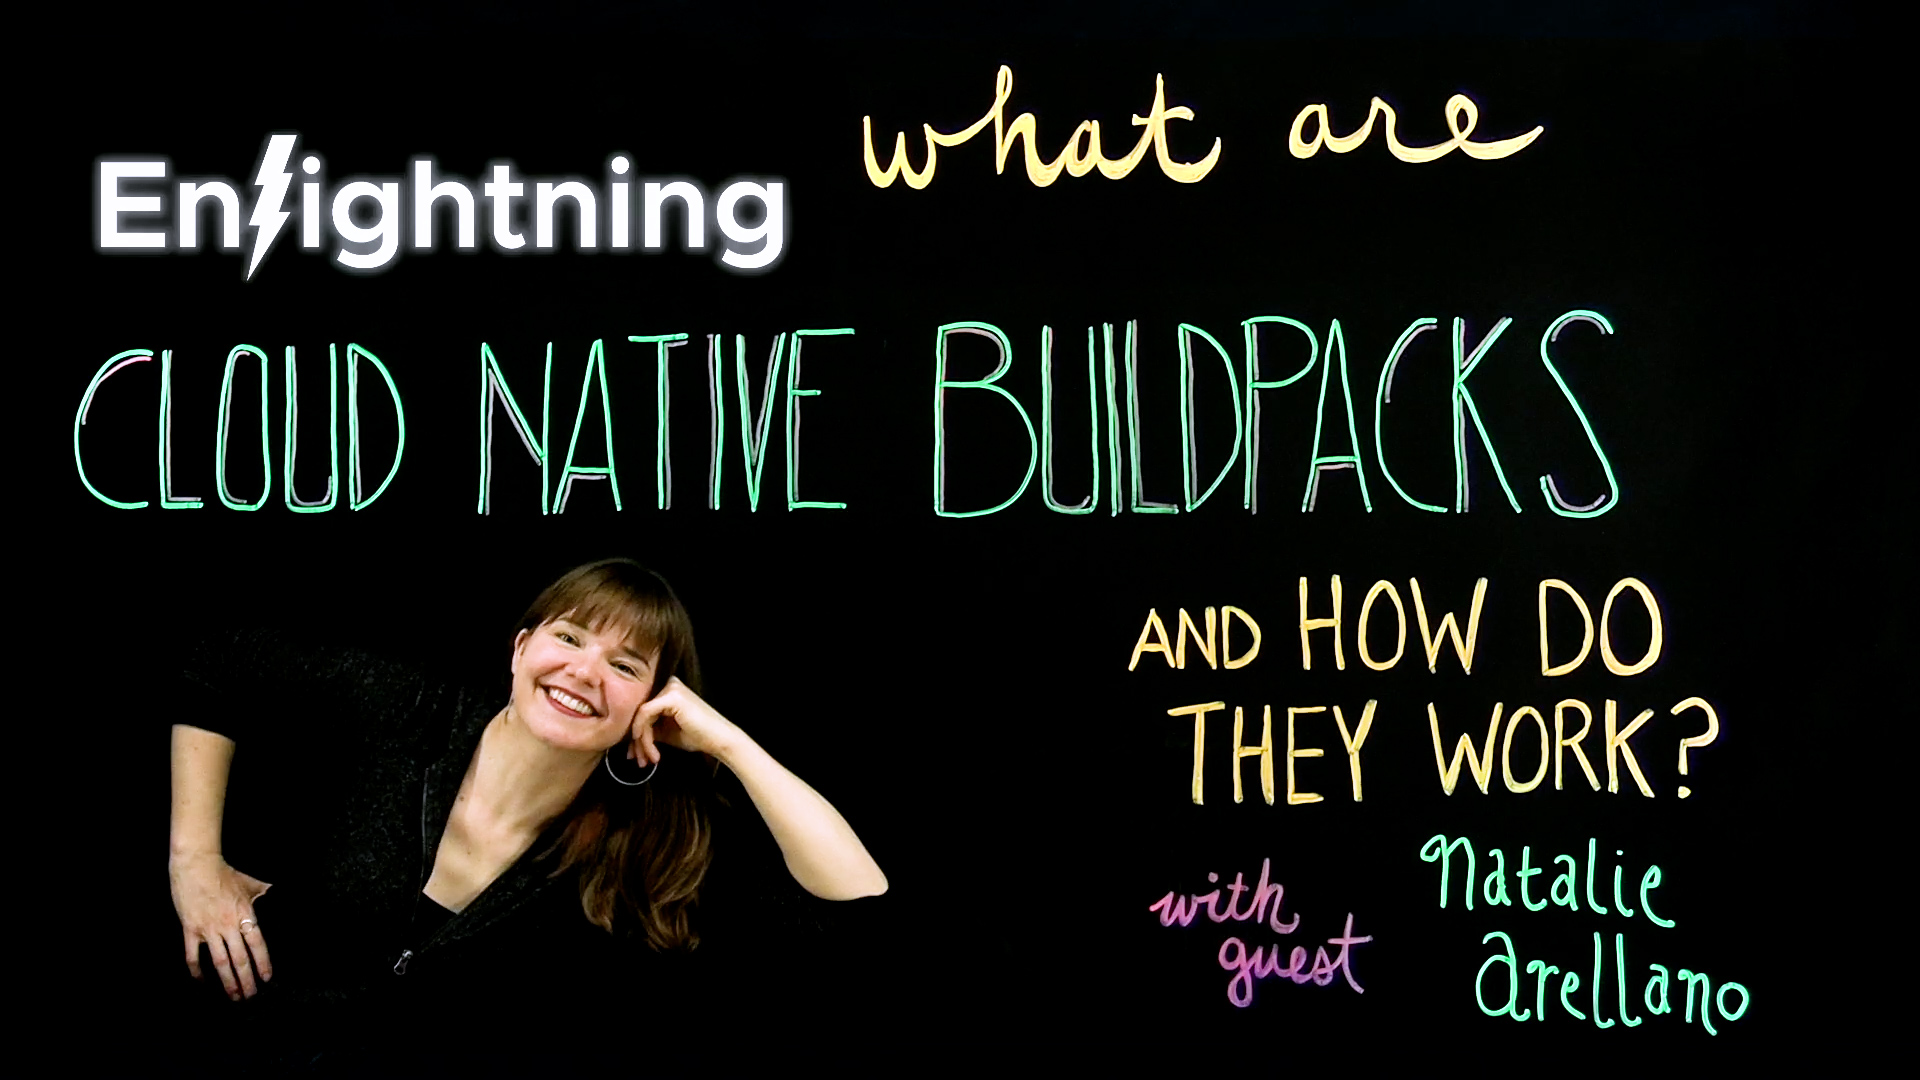 Enlightning
what are
CLOUD NATIVE BUILDPACKS
AND HOW DO
THEY WORK?
with
guest
Natalie
Arellano